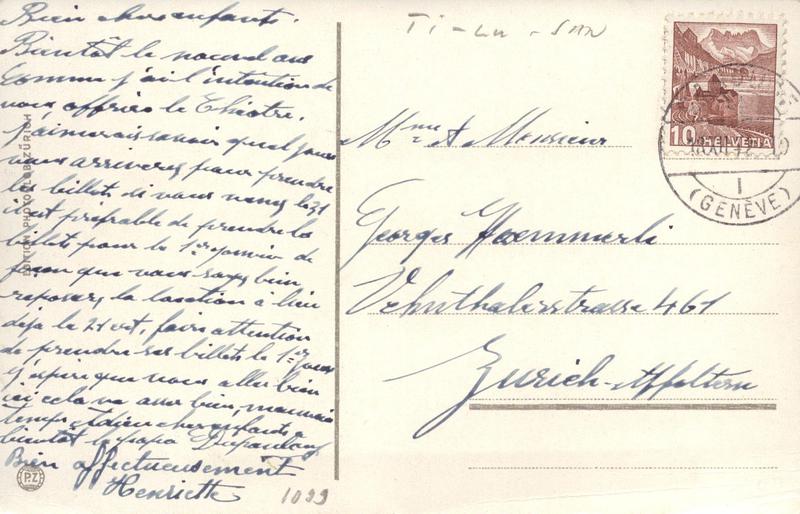 Bien chers enfants.
Bientôt le nouvel an
comme j'ai l'intention de
vous offrir le Théâtre.
j'aimerais savoir quel jour
vous arriverez pour prendre
les billets si vous venez le 31
il est préférable de prendre les
billets pour le 1er janvier de
façon que vous soyez bien
reposer, la location à lieu
déjà le 21 ct, faire attention
de prendre ses billets le 1er jour
j'espère que vous allez bien
ici cela va assez bien, mauvais
temps, Adieu chers enfants à
bientôt le papa
Bien affectueusement
Henriette
1099
EDITION PHOTOGLOB ZÜRICH
P.Z
Ti-Lu - San
10 HELVETIA
(GENÈVE)
1
Mme & Monsieur
Georges Haemmerli
Wehnthalerstrasse 461
Zurich-Affoltern